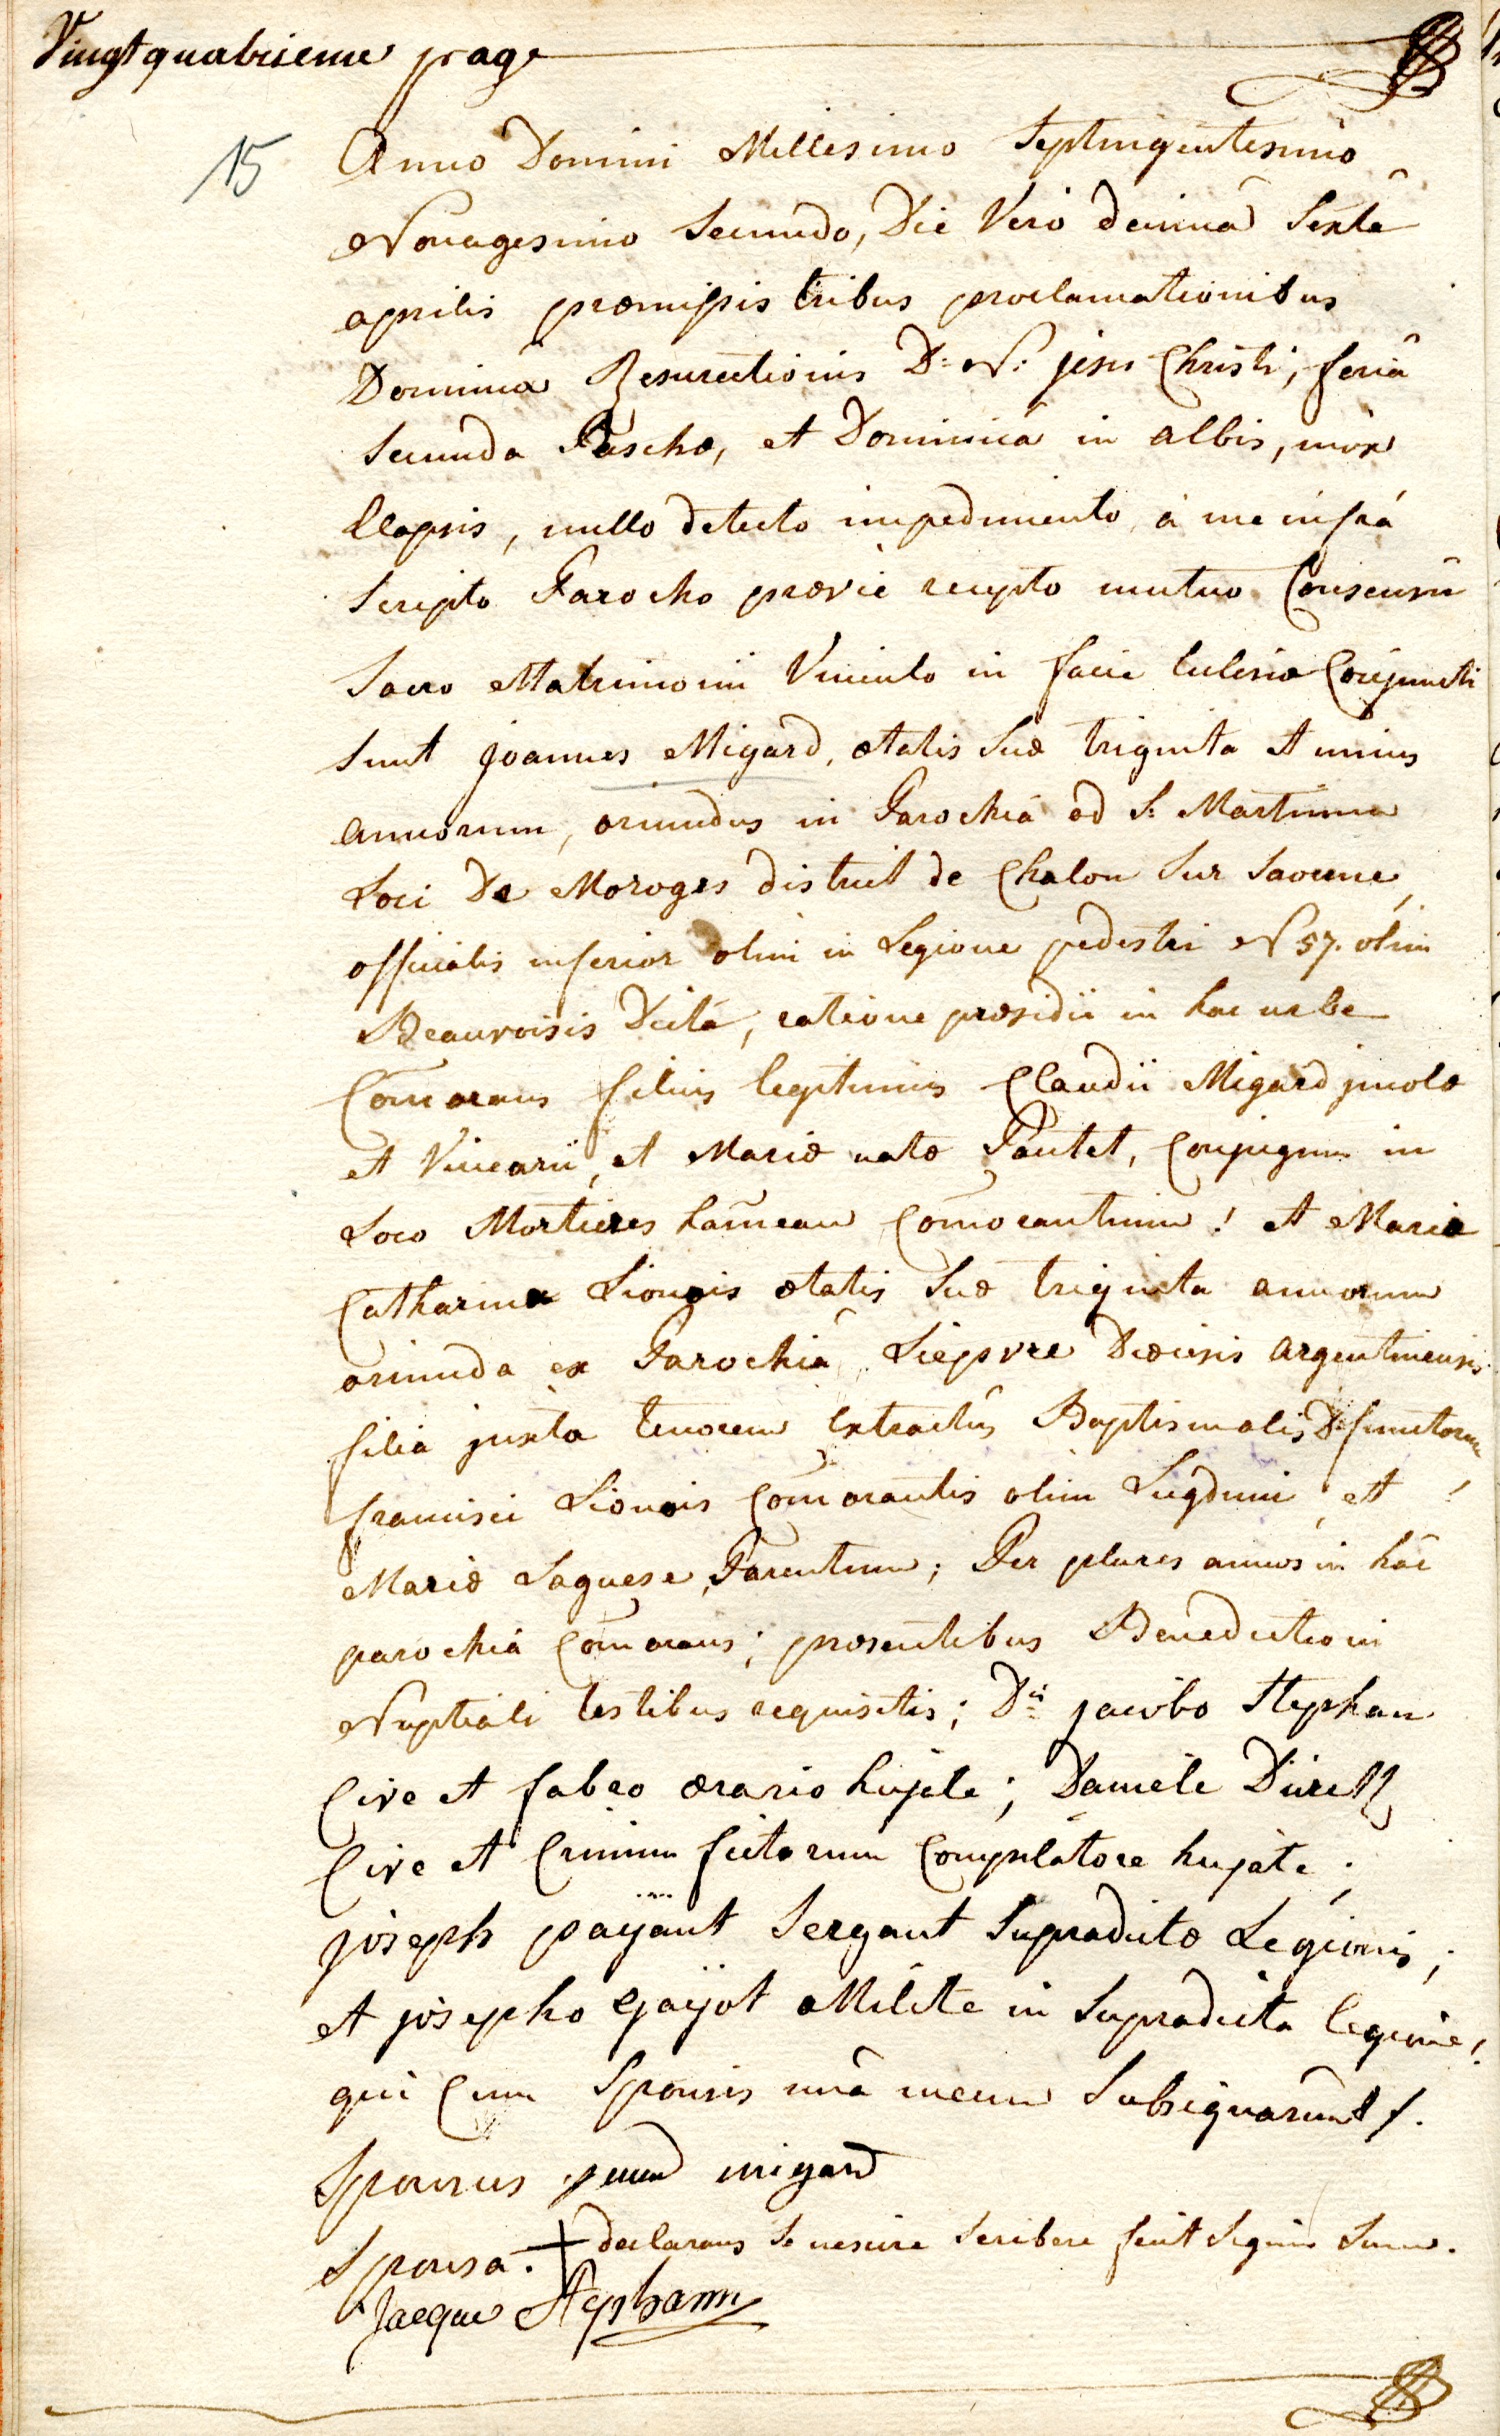 Vingt quatrieme page
15
Anno Domini Millesimo Septingentesimo
Nonagesimo Secundo, Die Vero decimâ Sextâ
aprilis præmissis tribus proclamationibus
Dominicâ Resurectionis D: N: jesu Christi, feriâ
Secunda Paschæ, et Dominicâ in albis, mox
Elapsis, nullo detecto impedimento, à me infrá
Scripto Parocho prævié recepto mutuo Consensu
Sacro Matrimonii Vinculo in facie Eclesiæ Conjuncti
Sunt joannes Migard, ætatis Suæ triginta et unius
annorum, oriundus in Parochiá ad S: Martinum
Loci De Moroges district de Chalon Sur Saoune,
officialis inferior olim in Legione pedestri N 57. olim
Beauvoisis Dictá, ratione præsidii in hac urbe
Com̃orans filius legitimus Claudii Migard jncolæ
et Vinearii, et Mariæ natæ Pautet, Conjugum in
Loco Mortieres ham̃eau Com̃orantium! et Maria
Catharina Lionois ætatis Suæ triginta annorum
oriunda ex Parochiâ Liepvre Diœcesis argentinensis
filia juxta tenorem Extractûs Baptismalis, Defunctorum
francisci Lionois Com̃orantis olim Lugduni et
Mariæ Laguese, Parentum; Per plures annos in hâc
parochiâ Com̃orans; præsentibus Benedictioni
Nuptiali testibus requisitis; D: jacobo Stephan
Cive et fabro ærario hujate; Daniele Dürell
Cive et Crinium fictorum Compilatore hujate;
joseph paÿant Sergant Supradictæ Legionis;
et josepho gaÿot Milite in Supradicta legione!
qui Cum Sponsis unâ mecum Subsignarunt /.
Sponsus jean migard
Sponsa. + declarans Se nescire Scribere fecit Signum Suum.
Jacque Stephann